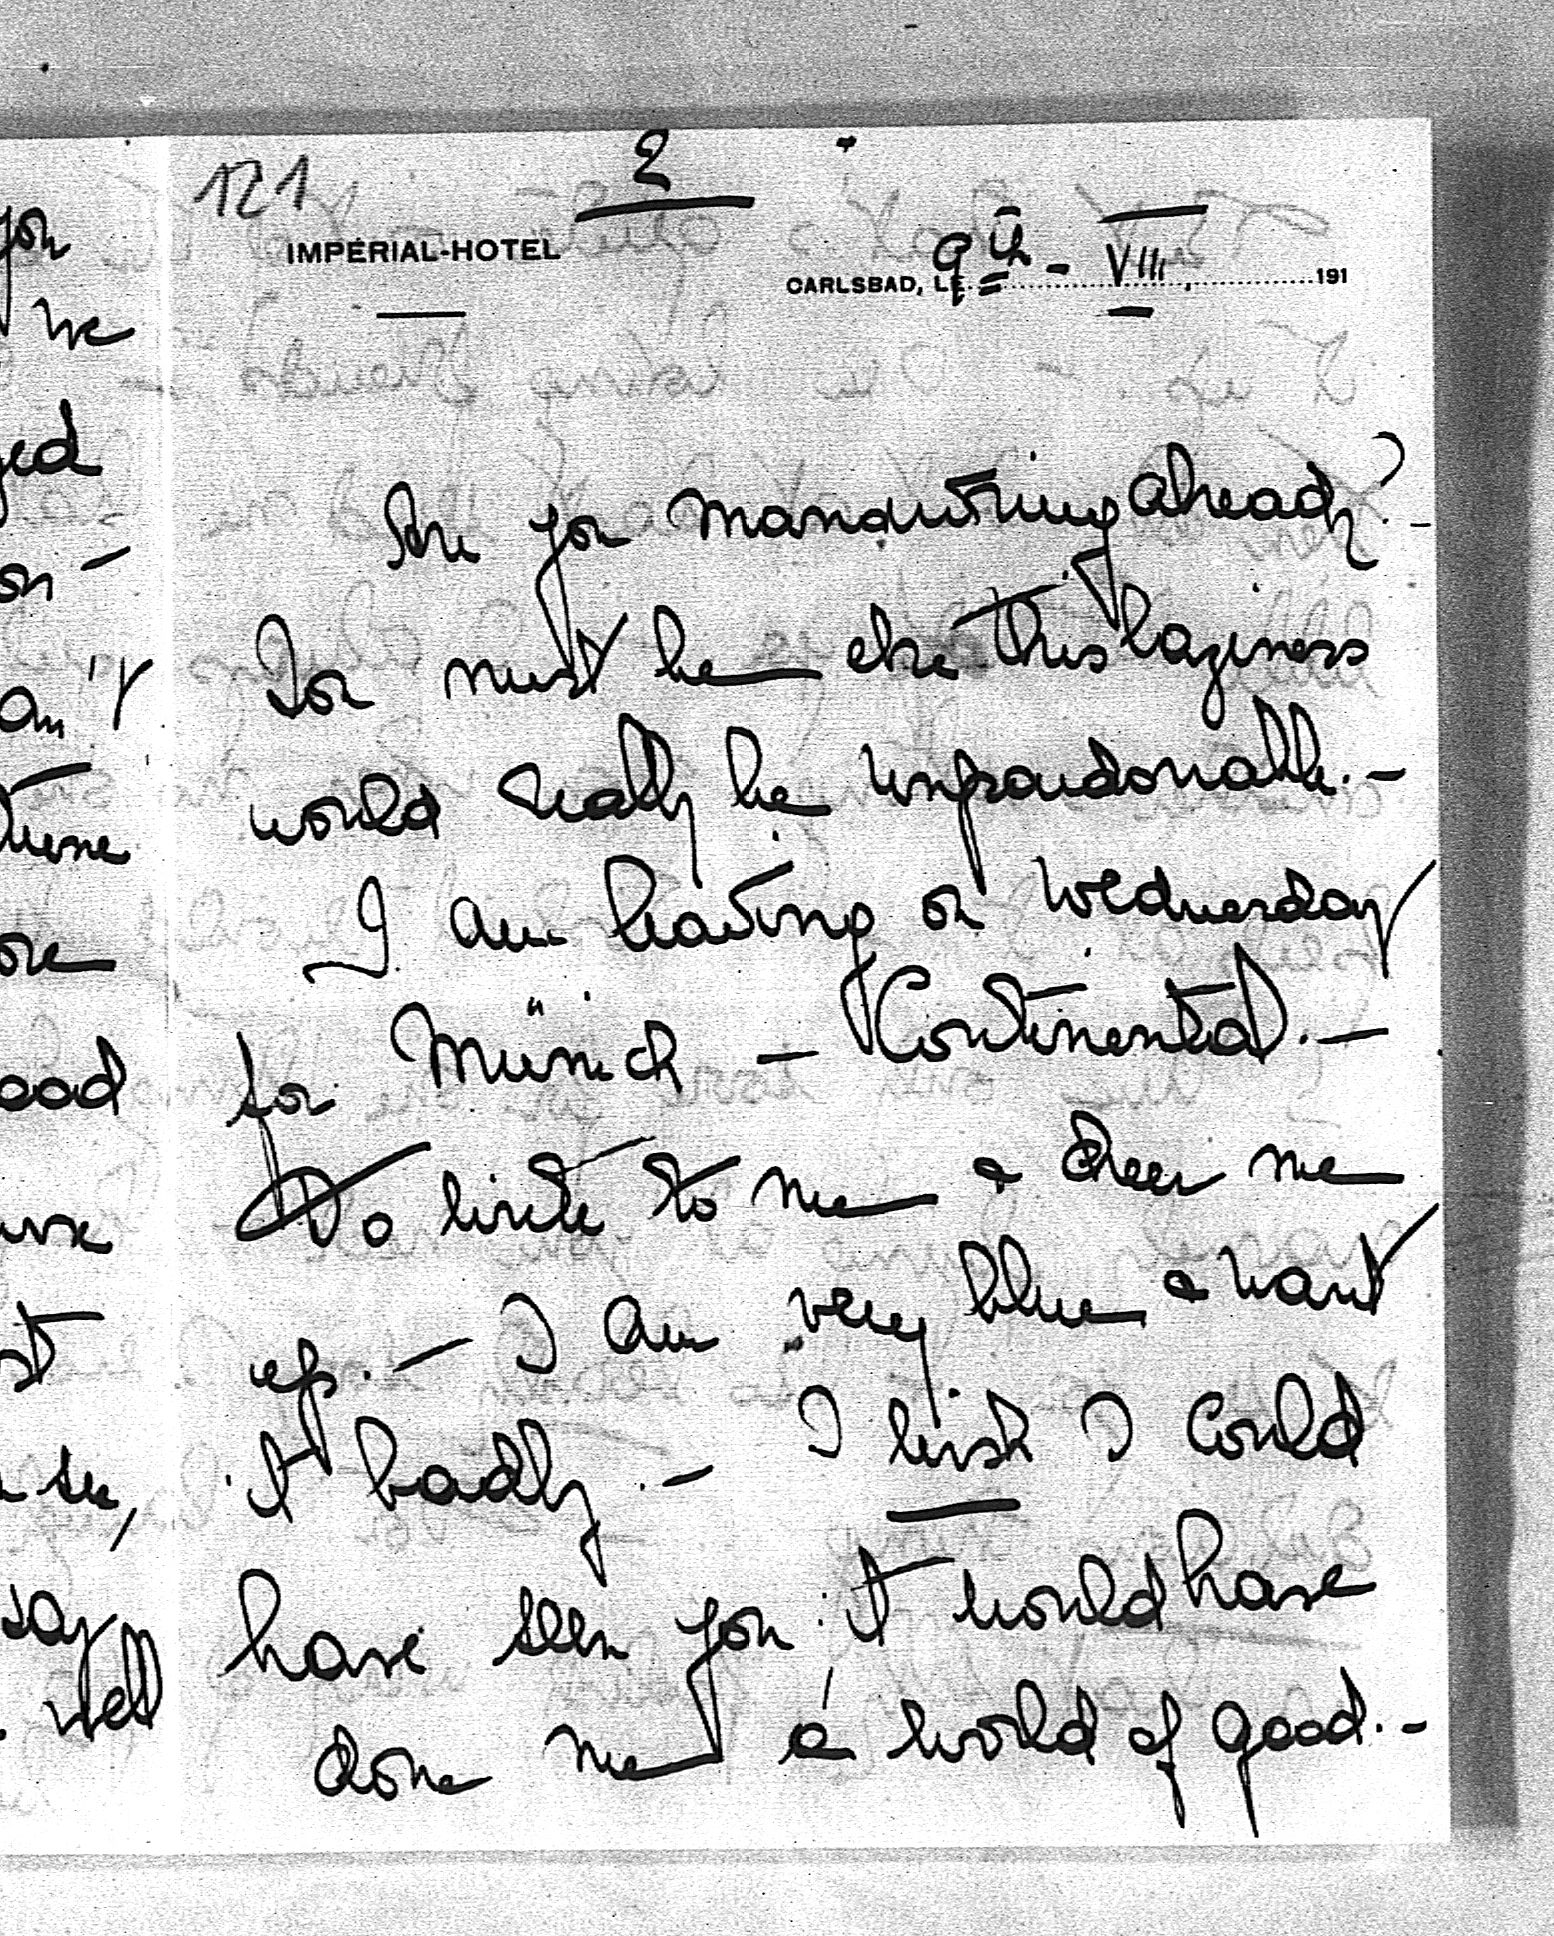 121
2
IMPÉRIAL-HOTEL
CARLSBAD, LE 9th - VIII 191
Are you manœuvring already? -
You must be else this laziness
would really be unpardonable. -
I am leaving on Wednesday
for Münich - Continental. -
Do write to me & cheer me
up. - I am very blue & want
it badly. - I wish I could
have seen you it would have
done me a world of good. -
you
we
on -
can't
ood
see,
say
well